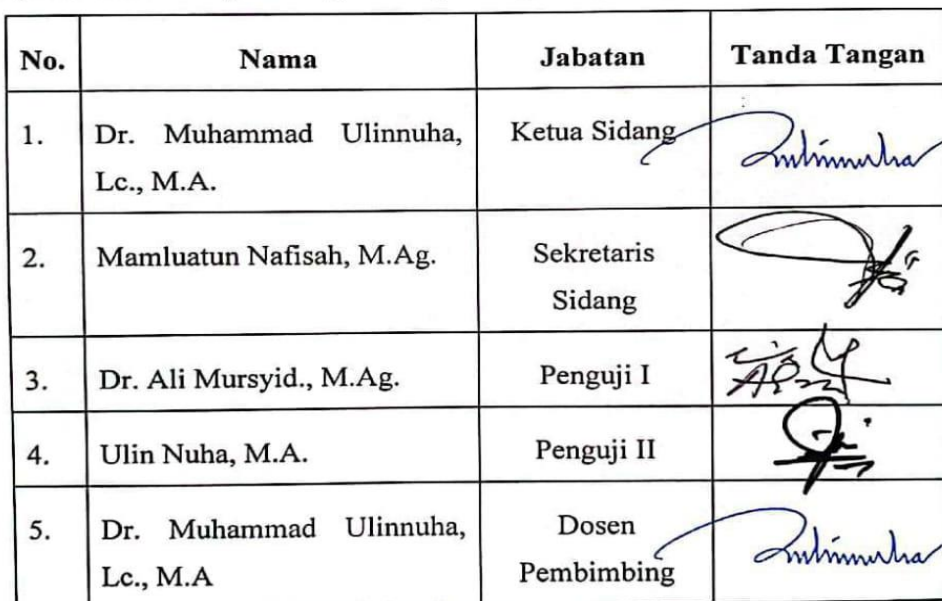 No. Nama Jabatan Tanda Tangan
1. Dr. Muhammad Ulinnuha, Ketua Sidang
Lc., M.A.
2. Mamluatun Nafisah, M.Ag. Sekretaris
Sidang
3. Dr. Ali Mursyid., M.Ag. Penguji I
4. Ulin Nuha, M.A. Penguji II
5. Dr. Muhammad Ulinnuha, Dosen
Lc., M.A Pembimbing